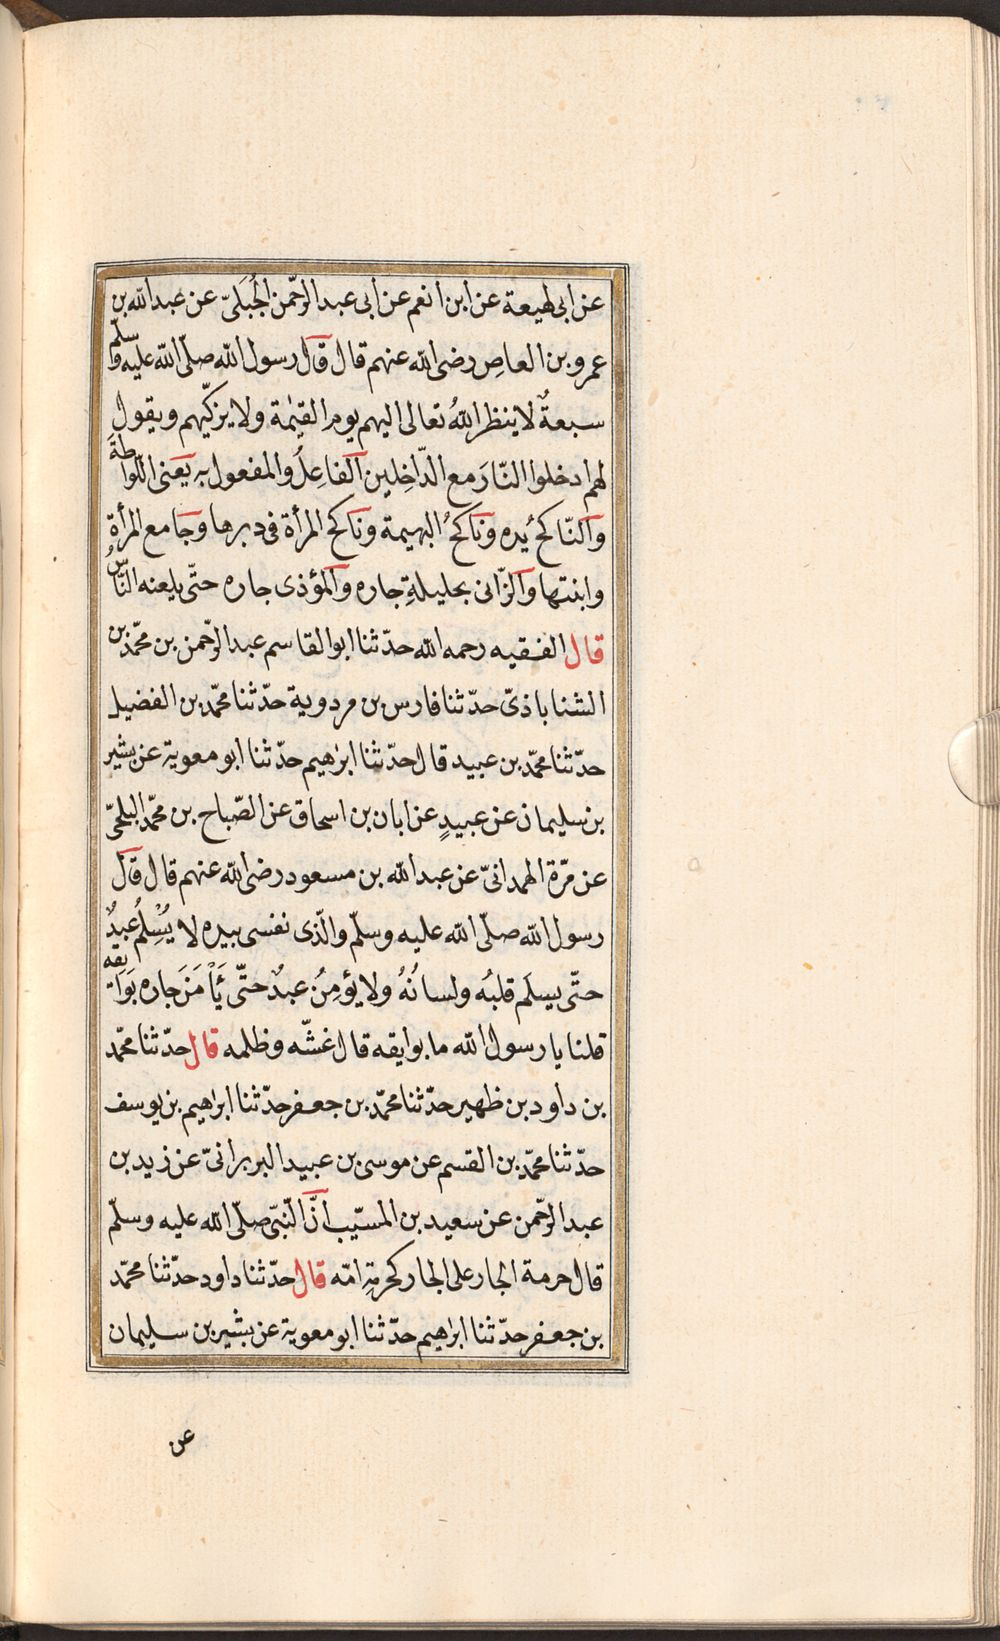 عن ابى لهيعة عن ابن انعم عن ابى عبد الرّحمن الجُبَلىّ عن عبد الله بن
عمرو بن العاص رضى الله عنهم قال قال رسول الله صلّى الله عليه وسلّم
سبعةٌ لا ينظر اللهُ تعالى اليهم يوم القيٰمة ولا يزكّيهم ويقول
لهم ادخلوا النّارَ مع الدّاخِلين الفاعِلُ والمفعول به يعنى اللّواطَةَ
والنّاكح يده وناكحُ البهيمة وناكح المرأة فى دبرها وجامع المرأة
وابنتها والزّانى بحليلةِ جاره والمؤذى جاره حتّى يلعنه النّاسُ
قال الفقيه رحمه الله حدّثنا ابو القاسم عبد الرّحمن بن محمّد بن
الشناباذىّ حدّثنا فارس بن مردوية حدّثنا محمّد بن الفضيل
حدّثنا محمّد بن عبيد قال حدّثنا ابرٰهيم حدّثنا ابو معوية عن بشير
بن سليمان عن عبيدٍ عن ابان بن اسحاق عن الصّباح بن محمّد البلخىّ
عن مرّة الهمدانىّ عن عبد الله بن مسعود رضى الله عنهم قال قال
رسول الله صلّى الله عليه وسلّم والّذى نفسى بيده لا يُسْلِمُ عبدٌ
حتّى يسلَم قلبُه ولسانُهُ ولا يؤمِنُ عبدٌ حتّى يَأْمَنَ جاره بَوَايقه
قلنا يا رسول الله ما بوايقه قال غشّه وظلمه قال حدّثنا محمّد
بن داود بن ظهير حدّثنا محمّد بن جعفر حدّثنا ابرٰهيم بن يوسف
حدّثنا محمّد بن القسم عن موسى بن عبيد البربرانىّ عن زيد بن
عبد الرّحمن عن سعيد بن المسيّب انّ النّبىّ صلّى الله عليه وسلّم
قال حرمة الجار على الجار كحرمةِ امّه قال حدّثنا داود حدّثنا محمّد
بن جعفر حدّثنا ابرٰهيم حدّثنا ابو معوية عن بشير بن سليمان
عن